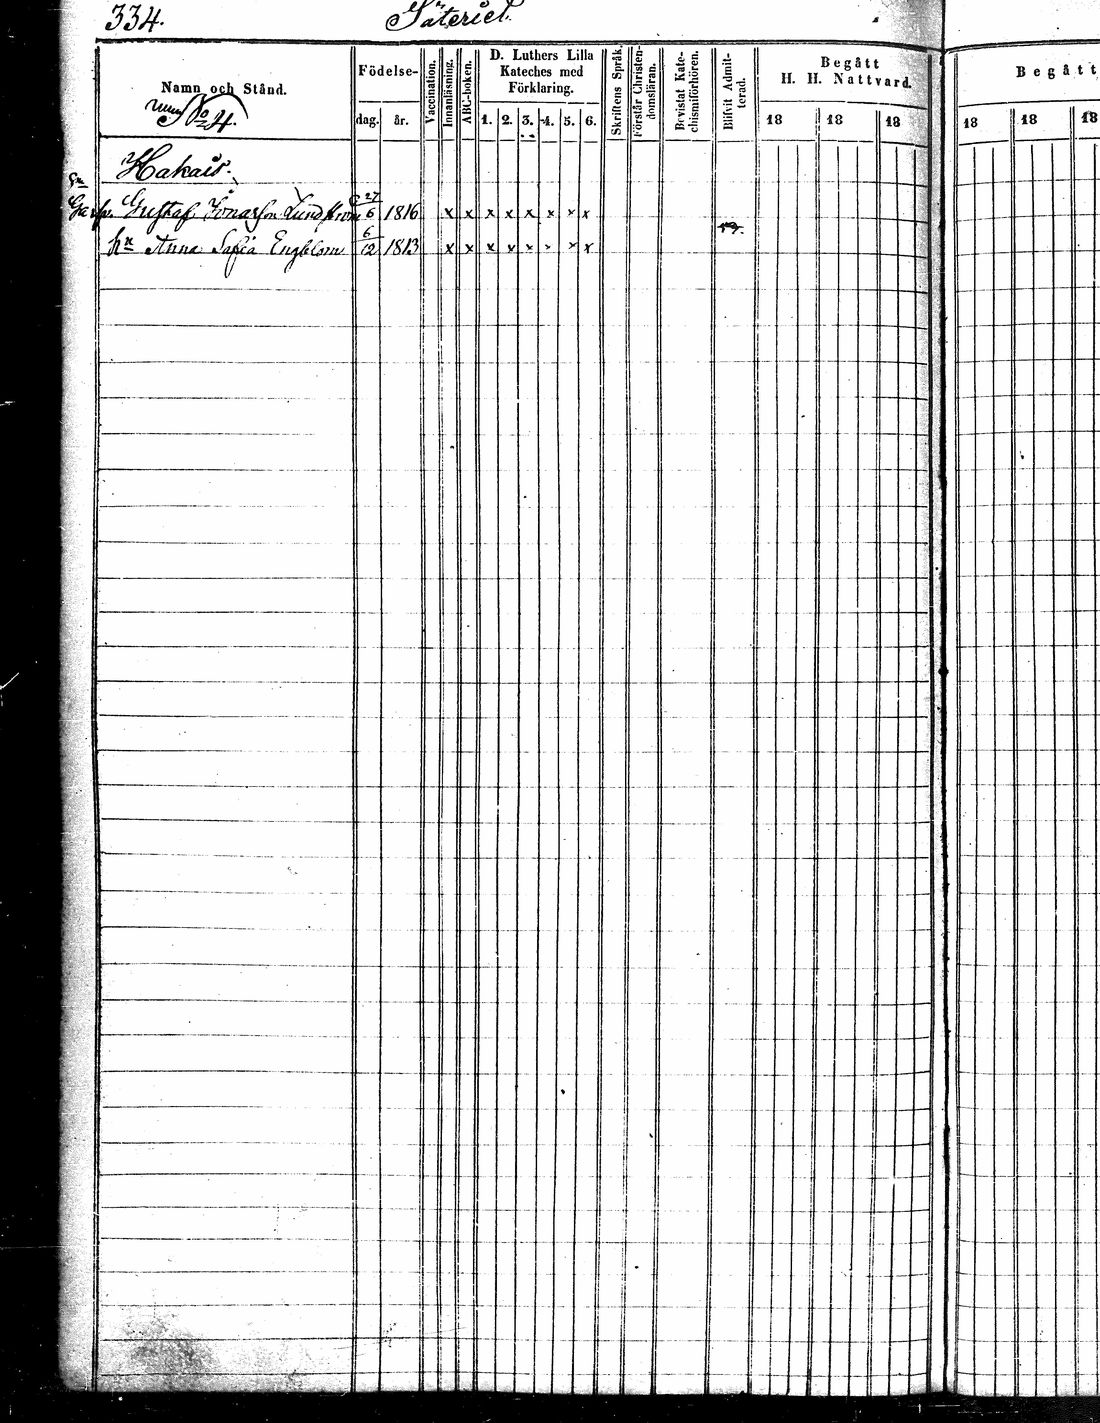 334. Säteriet.
Namn och Stånd.
Födelse-
dag. år.
Vaccination.
Innanläsning.
ABC-boken.
D. Luthers Lilla
Kateches med
Förklaring.
1. 2. 3. 4. 5. 6.
Skriftens Språk.
Förstår Christen-
domsläran.
Bevistat Kate-
chismiförhören.
Blifvit Admit-
terad.
Begått
H. H. Nattvard.
18 18 18
Begått
18 18 18
No 4.
Hakais.
Gustaf Jonasson Lundström 27/6 1816 x x x x x x x x
hu Anna Sofia Engblom 6/12 1813 x x x x x x x x